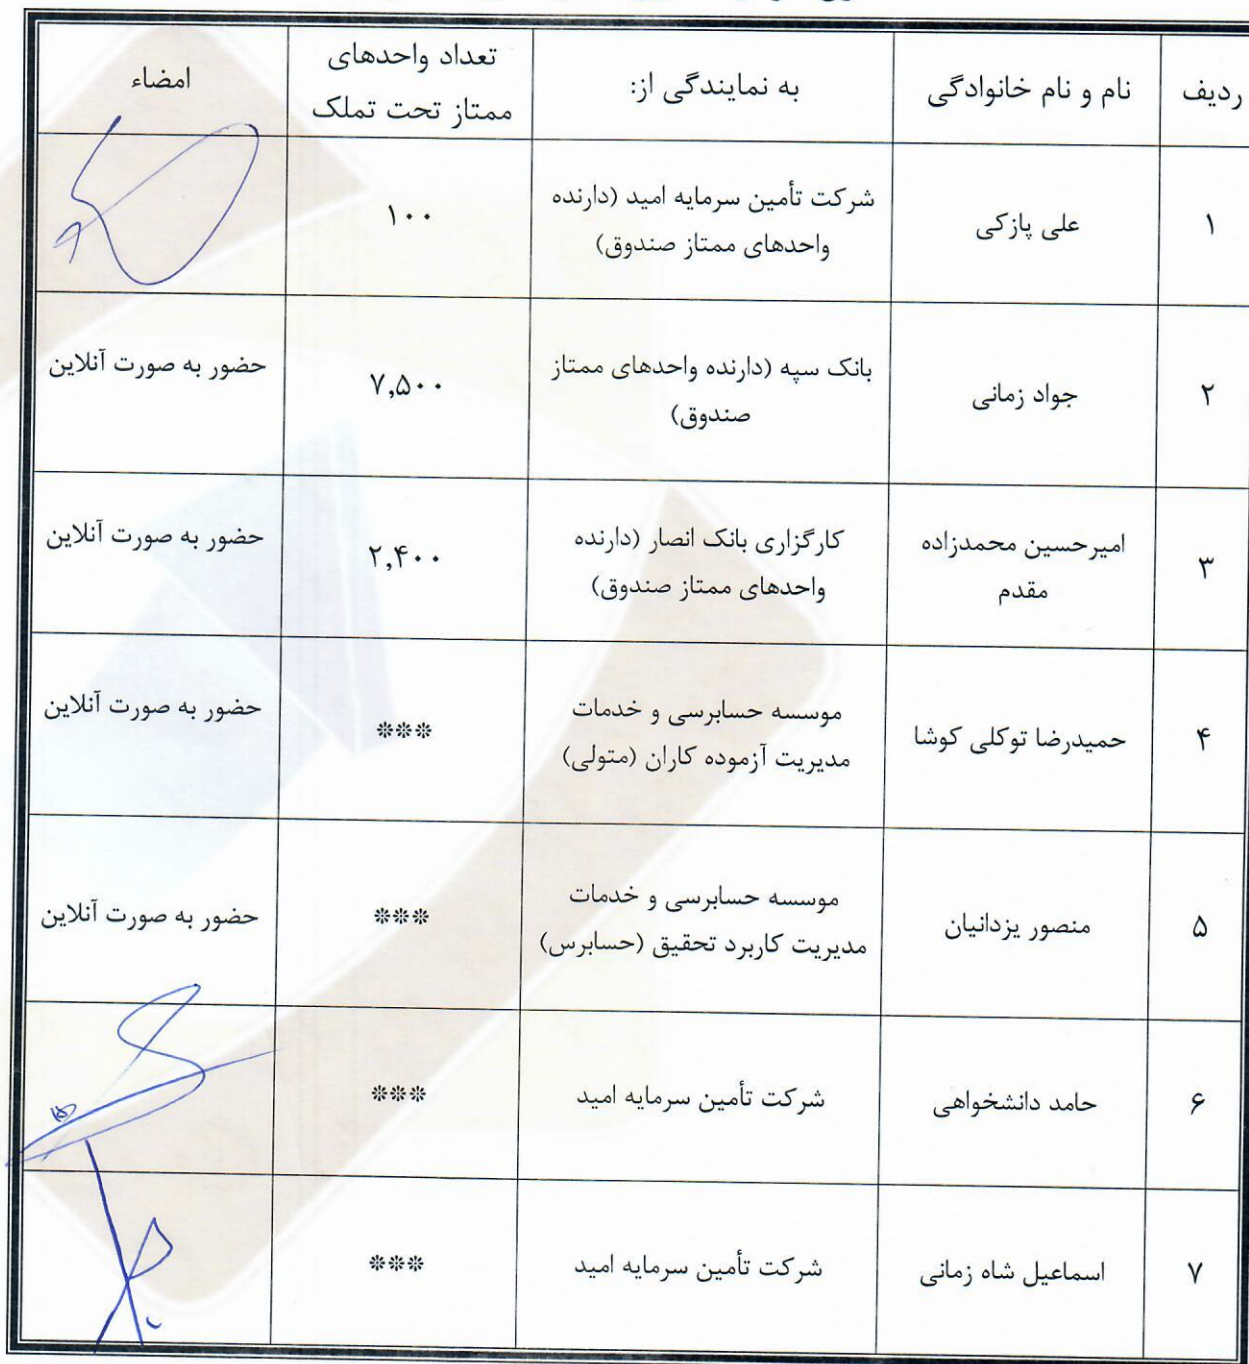 ردیف
نام و نام خانوادگی
به نمایندگی از:
تعداد واحدهای
ممتاز تحت تملک
امضاء
۱
علی پازکی
شرکت تأمین سرمایه امید (دارنده
واحدهای ممتاز صندوق)
۱۰۰
۲
جواد زمانی
بانک سپه (دارنده واحدهای ممتاز
صندوق)
۷,۵۰۰
حضور به صورت آنلاین
۳
امیرحسین محمدزاده
مقدم
کارگزاری بانک انصار (دارنده
واحدهای ممتاز صندوق)
۲,۴۰۰
حضور به صورت آنلاین
۴
حمیدرضا توکلی کوشا
موسسه حسابرسی و خدمات
مدیریت آزموده کاران (متولی)
***
حضور به صورت آنلاین
۵
منصور یزدانیان
موسسه حسابرسی و خدمات
مدیریت کاربرد تحقیق (حسابرس)
***
حضور به صورت آنلاین
۶
حامد دانشخواهی
شرکت تأمین سرمایه امید
***
۷
اسماعیل شاه زمانی
شرکت تأمین سرمایه امید
***